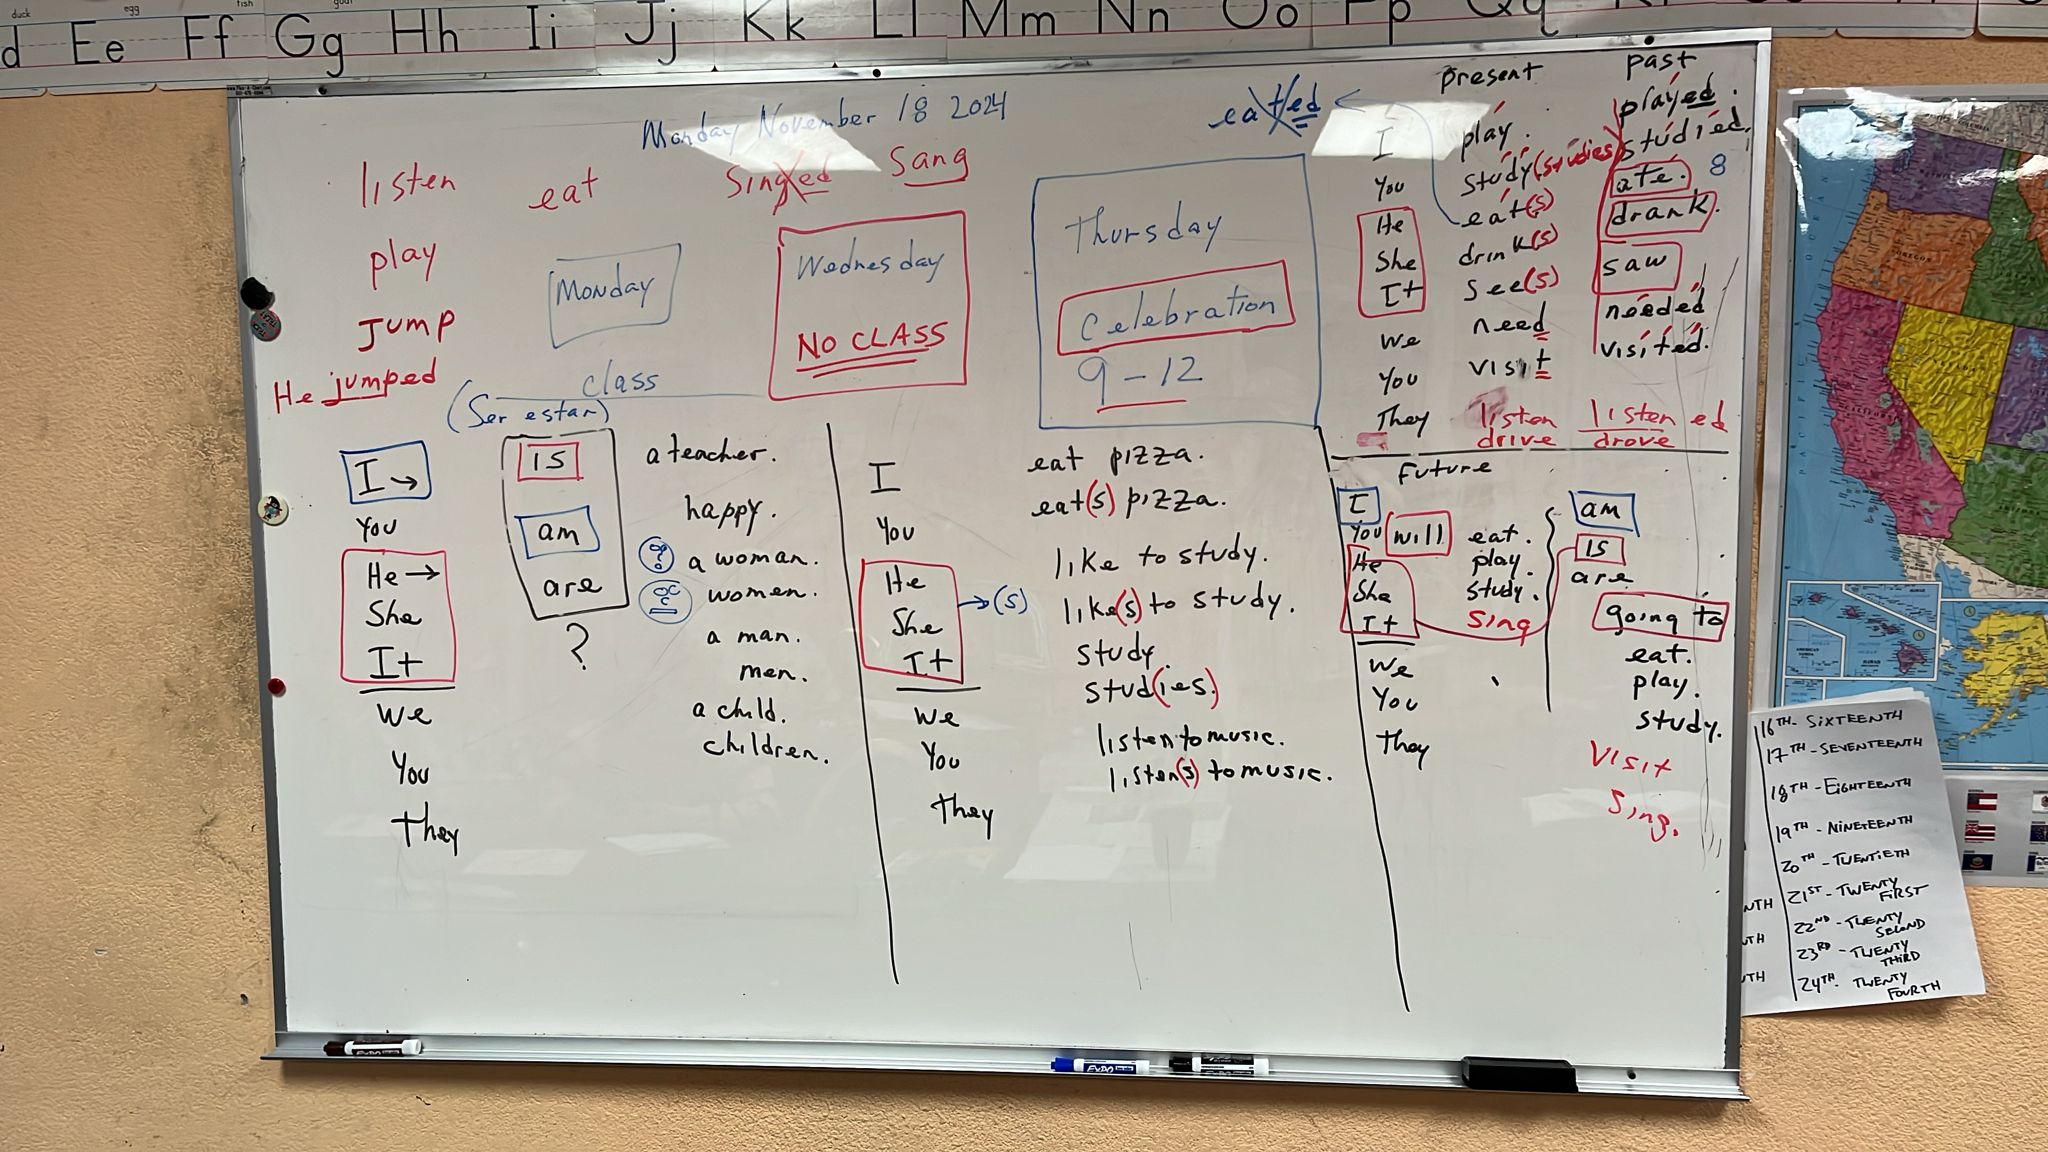 duck
egg
fish
goat
d Ee Ff Gg Hh Ii Jj Kk Ll Mm Nn Oo Pp Qq
Monday November 18 2024
listen eat singed sang
play
Jump
He jumped
Monday
Wednesday
NO CLASS
Thursday
Celebration
9-12
class
(Ser estar)
I →
You
He →
She
It
We
You
They
is
am
are
?
a teacher.
happy.
a woman.
women.
a man.
men.
a child.
children.
I
You
He
She
It
→(s)
We
You
They
eat pizza.
eat(s) pizza.
like to study.
like(s) to study.
study.
stud(ies.)
listen to music.
listen(s) to music.
eated
present
past
I
You
He
She
It
We
You
They
play.
study(studies)
eat(s)
drink(s)
see(s)
need
visit
listen
drive
played.
studied.
8
ate.
drank.
saw
needed
visited.
listened
drove
Future
I
You
He
She
It
We
You
They
will
eat.
play.
study.
sing
am
is
are
going to
eat.
play.
study.
visit
sing.
OREGON
CALIFORNIA
16TH- SIXTEENTH
17TH- SEVENTEENTH
18TH- EIGHTEENTH
19TH- NINETEENTH
20TH- TWENTIETH
21ST- TWENTY FIRST
22ND- TWENTY SECOND
23RD- TWENTY THIRD
24TH. TWENTY FOURTH
NTH
TH
TH
EXPO
EXPO